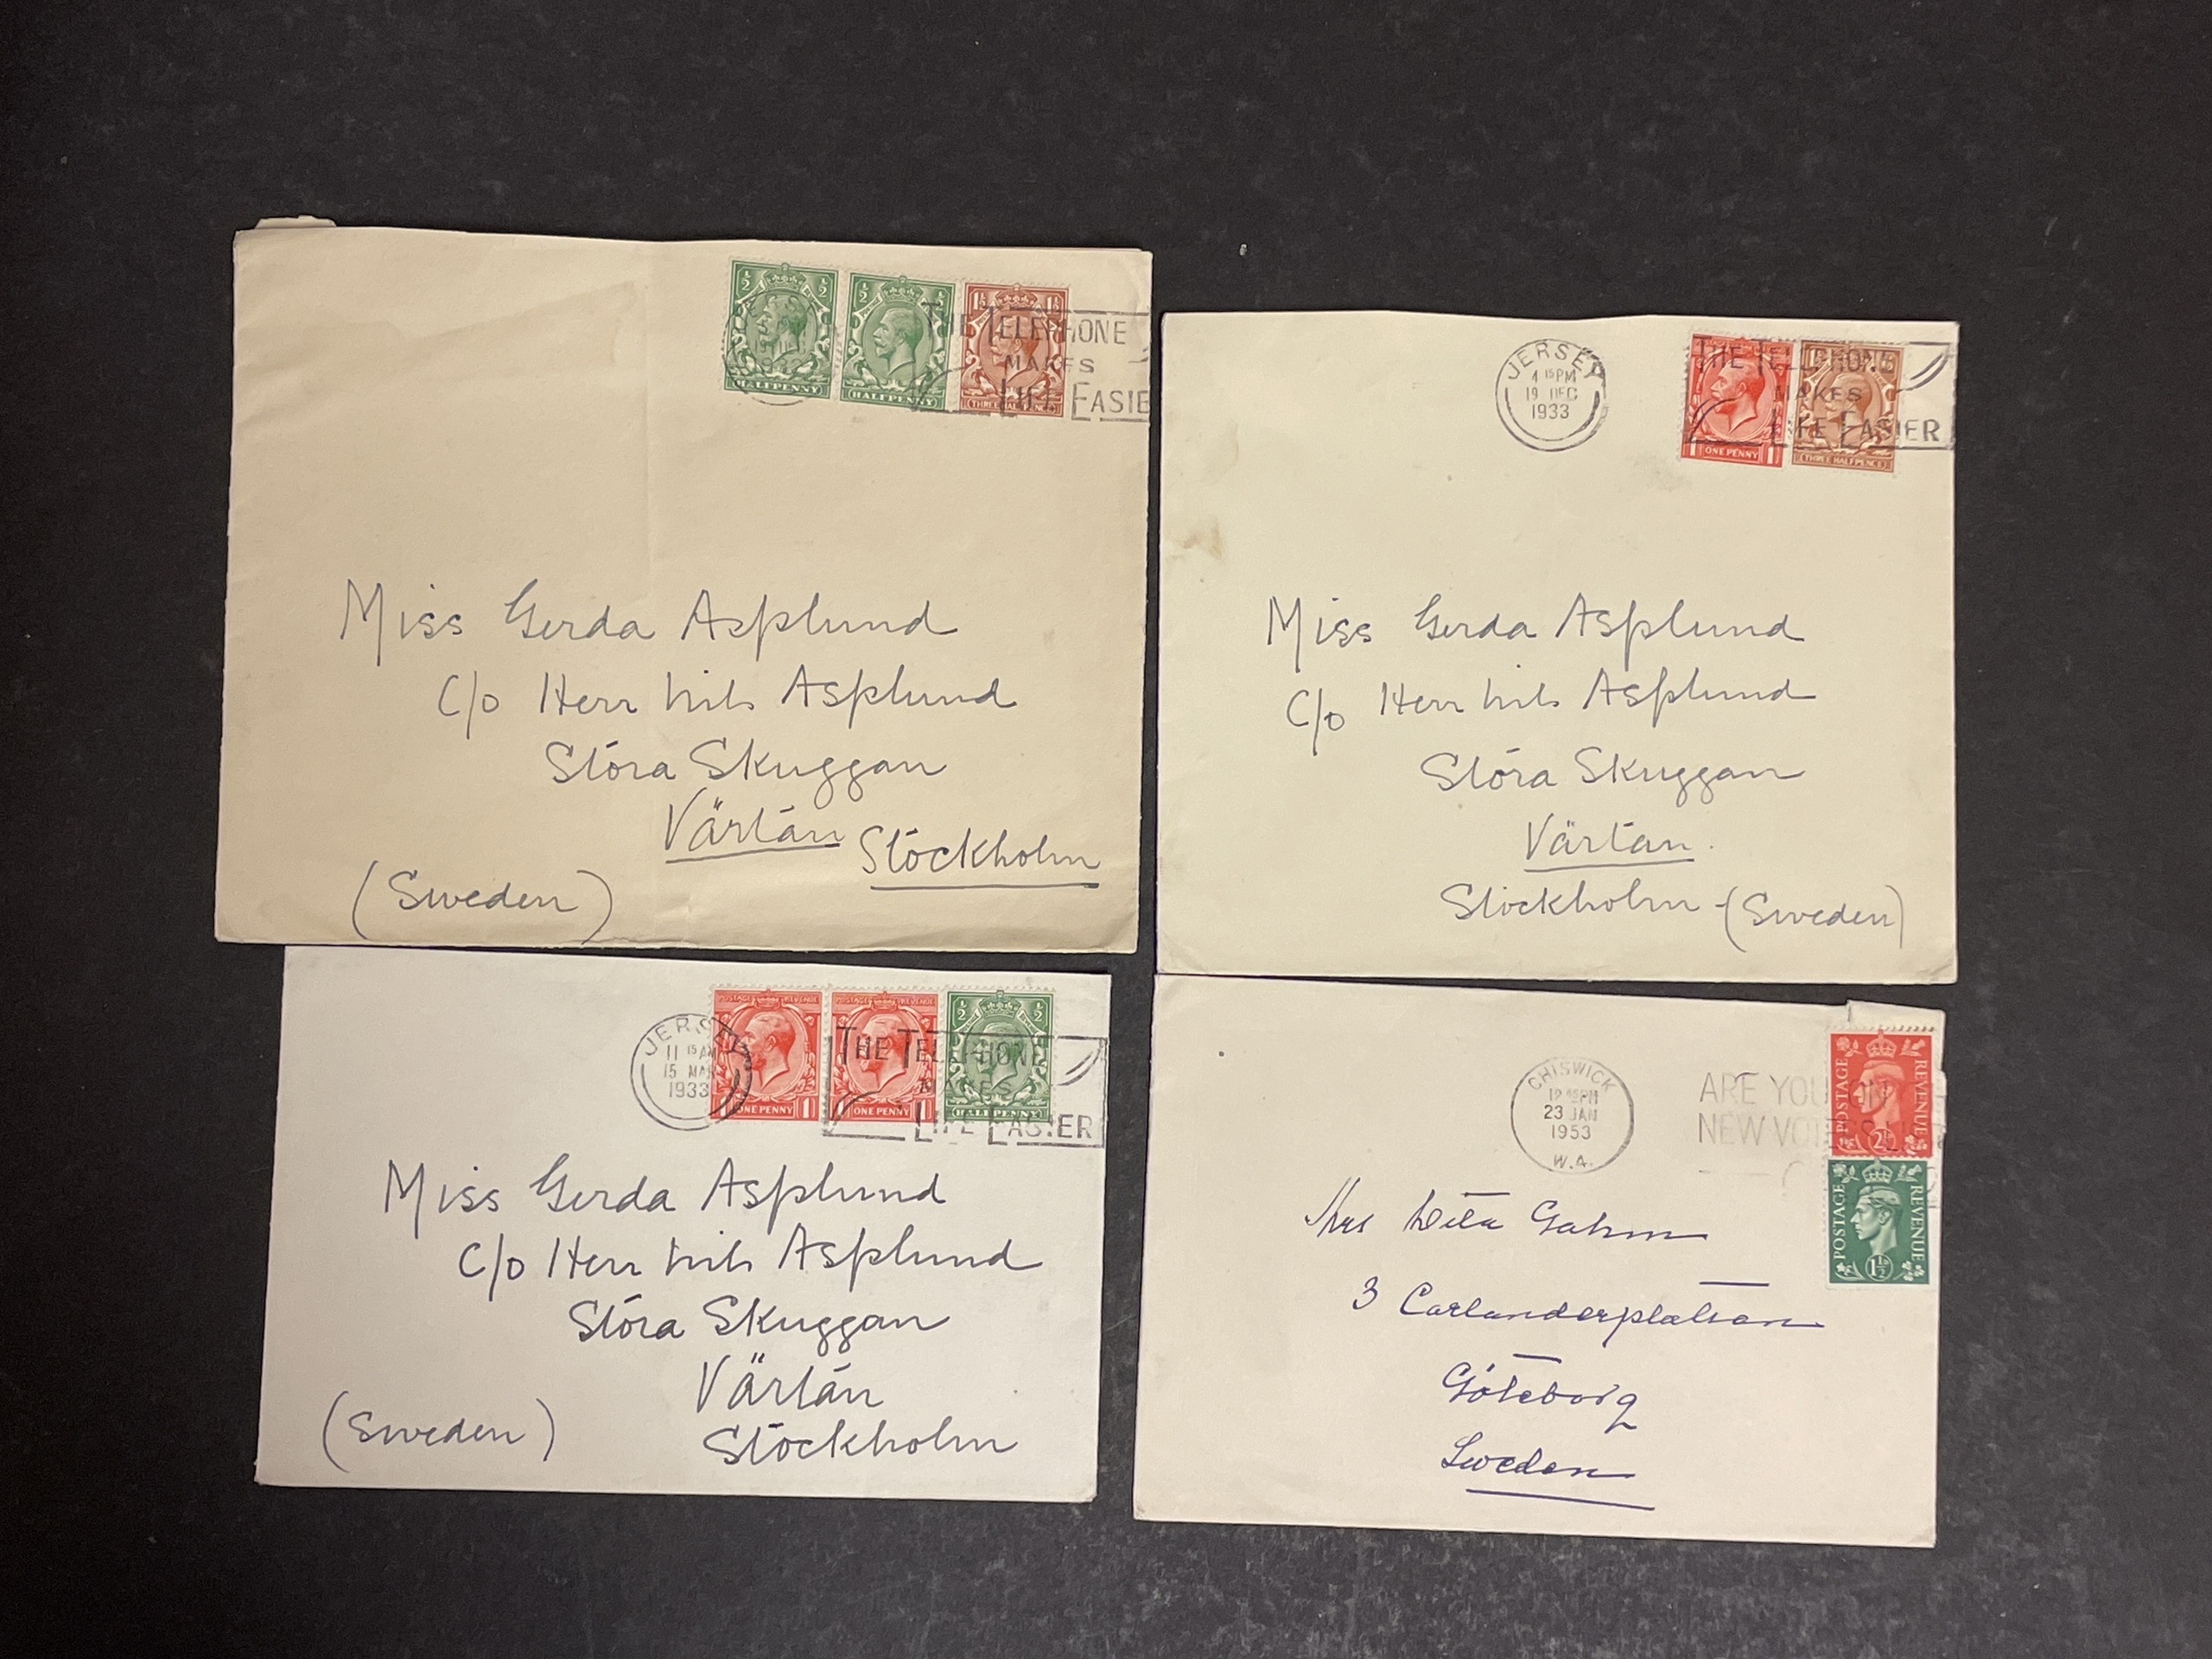 ½ ½
½ ½
1½ 1½
JERSEY
HALFPENNY
HALFPENNY
THREE HALFPENCE
THE TELEPHONE
MAKES
LIFE EASIE
Miss Gerda Asplund
C/o Herr Nils Asplund
Stora Skuggan
Värtan Stockholm
(Sweden)
JERSEY
4 15 PM
19 DEC
1933
ONE PENNY
THREE HALFPENCE
THE TELEPHONE
MAKES
LIFE EASIER
Miss Gerda Asplund
C/o Herr Nils Asplund
Stora Skuggan
Värtan.
Stockholm - (Sweden)
JERSEY
11 15 AM
15 MAR
1933
POSTAGE REVENUE
1 ONE PENNY 1
POSTAGE REVENUE
ONE PENNY 1
½ ½
HALFPENNY
THE TELEPHONE
MAKES
LIFE EASIER
Miss Gerda Asplund
C/o Herr Nils Asplund
Stora Skuggan
Värtan
Stockholm
(Sweden)
CHISWICK
12 45 PM
23 JAN
1953
W.4.
ARE YOU ON
NEW VOTERS
POSTAGE REVENUE
2½D
POSTAGE REVENUE
1½D
Mrs Gahm
3 Carlanderplatsen
Göteborg
Sweden